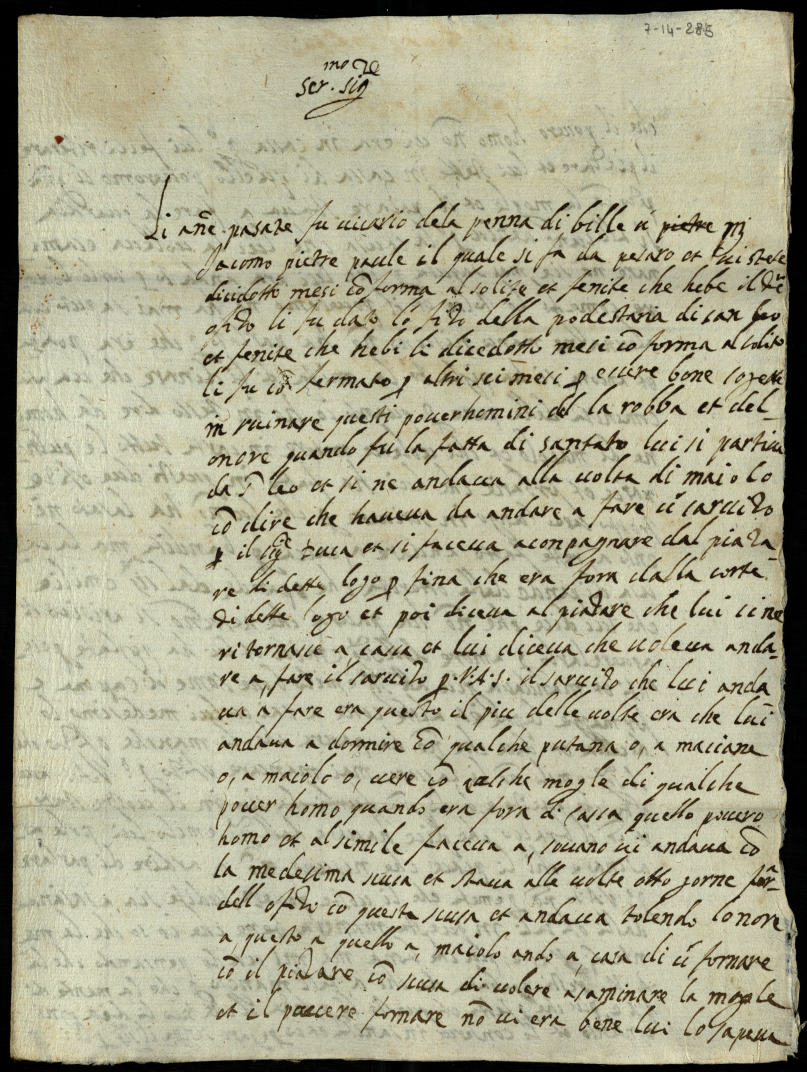 7-14-285
ser.mo sig.re
Li añe pasate fu vicario dela penna di bille ū pietre mi
Jacomo pietre paule il quale si fa da pesaro et vi stete
dicidotto mesi cō forma al solite et fenite che hebe il
ofitio li fu dato lofitio della podestaria di san leo
et fenite che hebi li dicedotti mesi cō forma al solito
li fu cō fermato p altri sei mesi p essere bone sogette
in ruinare questi poverhomini del la robba et del-
onore quando fu la fatta di santato lui si partiva
da S leo et si ne andava alla volta di maiolo
cō dire che haveva da andare a fare ū sarvitio
p il sig duca et si faceva aconpagnare dal piaza-
re di dette logo p fina che era fora dalla corte
di dette logo et poi diceva al piazare che lui ci ne
ritornasie a, casa et lui diceva che voleva anda-
re a, fare il sarvitio p. V.A.S. il sarvitio che lui anda
va a fare era questo il piu delle volte era che lui
andava a dormire cō qualche putana o, a maciane
o, a maiolo o, vere cō qualche mogle di qualche
pover homo quando era fora di cassa quello povero
homo et al simile faceva a, sovano vi andava cō
la medesima scusa et stava alle volte otto gorne for
dell ofitio cō queste scusa et andava tolendo lonore
a, questo a quello a, maiolo ando a, casa di ū fornare
cō il piazare cō scusa di volere asaminare la mogle
et il povere fornare nō vi era bene lui lo sapeva